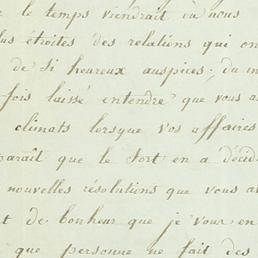 le temps viendrait où nous
plus étroites des relations qui on
de si heureux auspices; du m
fois laissé entendre que vous a
climats lorsque vos affaires
paraît que le sort en a décid
nouvelles résolutions que vous a
t de bonheur que je vous en
que personne ne fait des